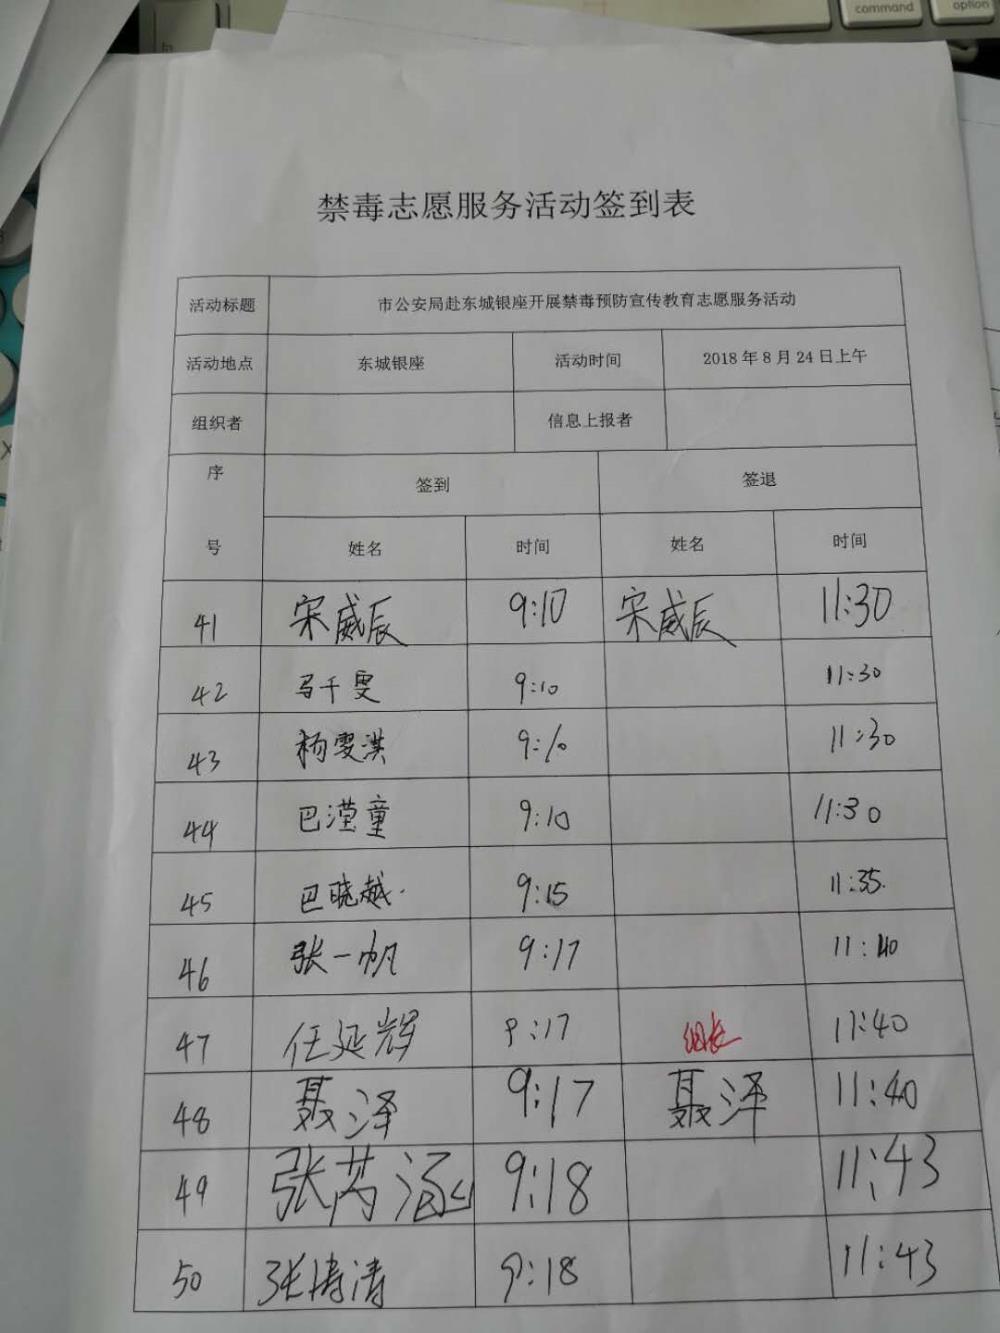 command
option
禁毒志愿服务活动签到表
活动标题 市公安局赴东城银座开展禁毒预防宣传教育志愿服务活动
活动地点 东城银座 活动时间 2018年8月24日上午
组织者 信息上报者
序号 签到 签退
姓名 时间 姓名 时间
41 宋威辰 9:10 宋威辰 11:30
42 马千雯 9:10 11:30
43 杨雯淇 9:10 11:30
44 巴滢童 9:10 11:30
45 巴晓越 9:15 11:35
46 张一帆 9:17 11:40
47 任延辉 9:17 组长 11:40
48 聂泽 9:17 聂泽 11:40
49 张芮涵 9:18 11:43
50 张涛清 9:18 11:43